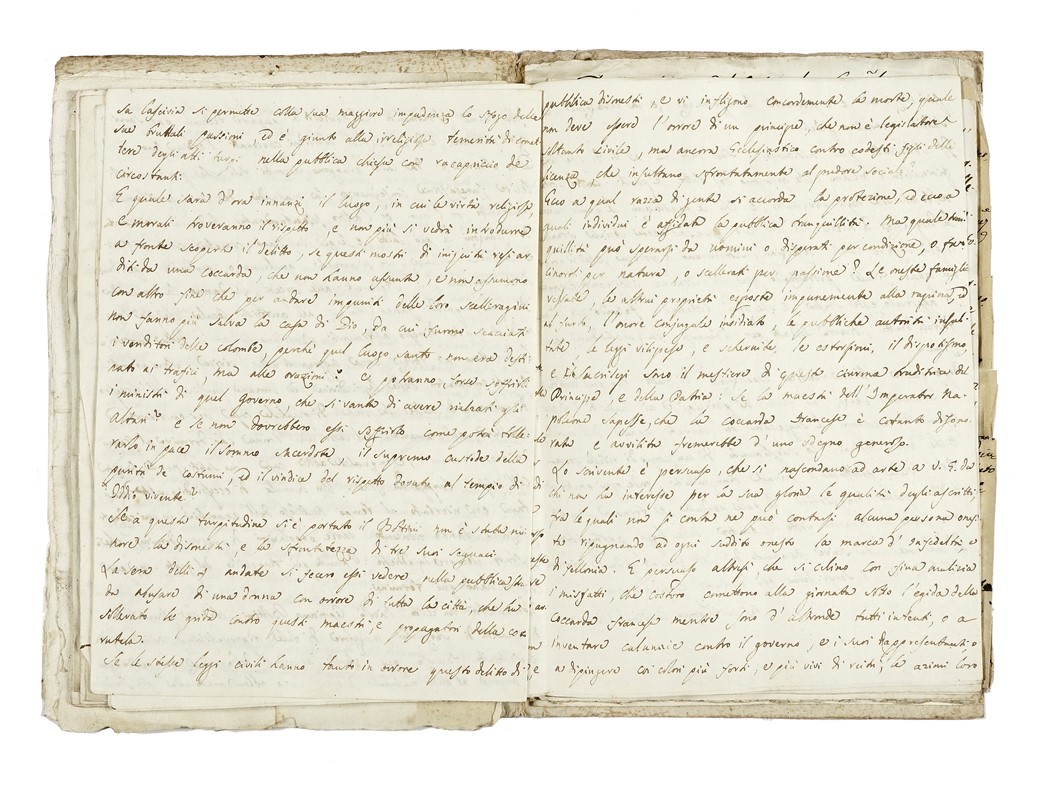 sa lascivia si permette colla sua maggiore impudenza lo sfogo delle
sue bruttali passioni, ed è giunto alla irreligiosa temerità di comet
tere degli atti turpi nella pubblica chiesa con racapricio de
circostanti.
E quale sarà d'ora innanzi il luogo, in cui le virtù religiose
e morali troveranno il rispetto, e non più si vedrà introdurre
a fronte scoperta il delitto, se questi mostri di iniquità resi ar
diti da una coccarda, che non hanno assunta, e non assumono
con altro fine che per andare impuniti delle loro scelleragini
non fanno più salva la casa di Dio, da cui furono scacciati
i venditori delle colombe, perchè quel luogo santo non era desti
nato ai trafici, ma alle orazioni? E potranno forse soffrirli
i ministri di quel governo che si vanta di avere rialzati gli
Altari? e se non dovrebbero essi soffrirlo come potrà tolle
rarlo in pace il sommo sacerdote, il supremo custode della
purità de costumi, ed il vindice del rispetto dovuto al tempio di
Dio vivente?
Se a questa turpitudine si è portato il non è stata mi
nore la disonestà, e la sfrontatezza di tre suoi seguaci
La sera delli andate si fecero essi vedere nella pubblica stra
da abusare di una donna con orrore di tutta la città, che ha
sollevato le grida contro questi maestri, e propagatori della cor
rutela.
Se le stesse leggi civili hanno tanto in orrore questo delitto di
pubblica disonestà, e vi infligono concordemente la morte, quale
non deve essere l'orrore di un principe, che non è legislatore
soltanto civile, ma ancora Ecclesiastico contro codesti figli della
licenza, che insultano sfrontatamente al pudore sociale?
Ecco a qual razza di gente si accorda la protezione, ed ecco a
quali individui è affidata la pubblica tranquillità. Ma quale tran
quillità può sperarsi da uomini o disperati per condizione, o fa
cinorosi per natura, o scellerati per passione? Le oneste famiglie
vessate, le altrui proprietà esposte impunemente alla rapina, ed
al furto, l'onore conjugale insidiato, le pubbliche autorità insul
tate, le leggi vilipese, e schernite, le estorsioni, il dispotismo
e li sacrilegi sono il mestiere di questa ciurma traditrice del
Principe, e della Patria: se la maestà dell'Imperator Na
poleone sapesse, che la coccarda francese è cotanto disono
rata e avvilita fremerebbe d'uno sdegno generoso.
Lo scrivente è persuaso, che si nascondano ad arte a V. E. da
chi non ha interesse per la sua gloria le qualità degli ascritti
fra le quali non si conta ne può contarsi alcuna persona ones
ta ripugnando ad ogni suddito onesto la marca d'infedeltà, e
di fellonia. E persuaso altresì che si celino con fina malizia
i misfatti che costoro comettono alla giornata sotto l'egida della
coccarda francese mentre sono d'altronde tutti intenti, o a
inventare calunnie contro il governo, e i suoi Rappresentanti o
a dipingere coi colori più forti, e più vivi di reità, le azioni loro